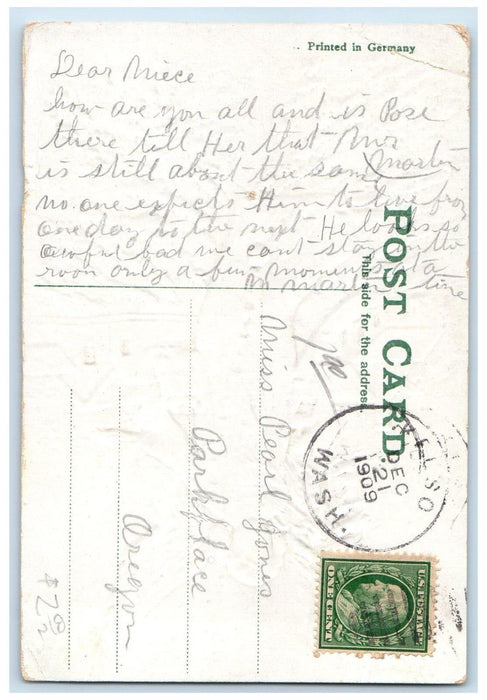 Printed in Germany
Dear Niece
how are you all and is Rose
there tell Her that
Martin
is still about the same
no one expects Him to live from
one day to the next He looks so
awful bad we cant stay in the
room only a few moments at a
time
M Martin
POST CARD
This side for the address
Miss Pearl Jones
Parkplace
Oregon
KELSO
DEC
21
1909
WASH.
U.S. POSTAGE
ONE CENT